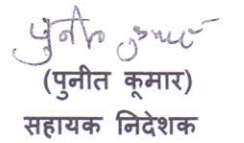 पुनीत कुमार
(पुनीत कूमार)
सहायक निदेशक